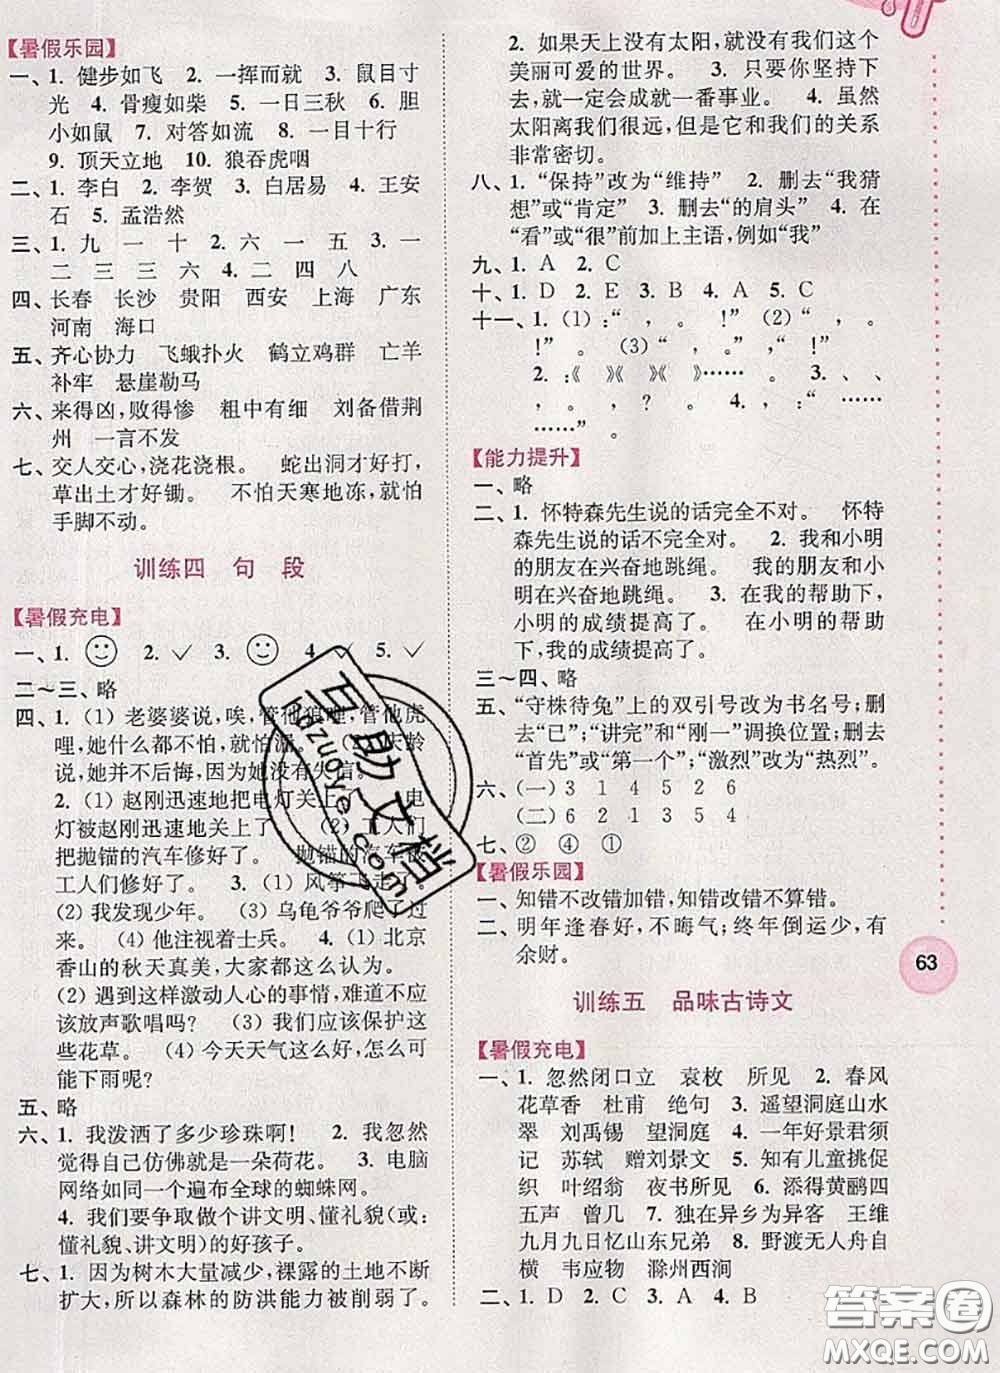 【暑假乐园】
一、1. 健步如飞 2. 一挥而就 3. 鼠目寸
光 4. 骨瘦如柴 5. 一日三秋 6. 胆
小如鼠 7. 对答如流 8. 一目十行
9. 顶天立地 10. 狼吞虎咽
二、1. 李白 2. 李贺 3. 白居易 4. 王安
石 5. 孟浩然
三、1. 九 一 十 2. 六 一 五 3. 一
二 三 三 六 4. 二 四 八
四、长春 长沙 贵阳 西安 上海 广东
河南 海口
五、齐心协力 飞蛾扑火 鹤立鸡群 亡羊
补牢 悬崖勒马
六、来得凶,败得惨 粗中有细 刘备借荆
州 一言不发
七、交人交心,浇花浇根。 蛇出洞才好打,
草出土才好锄。 不怕天寒地冻,就怕
手脚不动。
训练四 句 段
【暑假充电】
一、1. 2. ✓ 3. 4. ✓ 5. ✓
二～三、略
四、1. (1) 老婆婆说,唉,管他狼哩,管他虎
哩,她什么都不怕,就怕漏。 (2) 庆龄
说,她并不后悔,因为她没有失信。
2. (1) 赵刚迅速地把电灯关上了。 电
灯被赵刚迅速地关上了。 (2) 工人们
把抛锚的汽车修好了。 抛锚的汽车被
工人们修好了。 3. (1) 风筝飞走了。
(2) 我发现少年。 (3) 乌龟爷爷爬了过
来。 (4) 他注视着士兵。 4. (1) 北京
香山的秋天真美,难道你不这么认为?
(2) 遇到这样激动人心的事情,难道不应
该放声歌唱吗? (3) 我们应该保护这
些花草。 (4) 今天天气这么好,怎么可
能下雨呢?
五、略
六、1. 我泼洒了多少珍珠啊! 2. 我忽然
觉得自己仿佛就是一朵荷花。 3. 电脑
网络如同一个遍布全球的蜘蛛网。
4. 我们要争取做个讲文明、懂礼貌(或:
懂礼貌、讲文明)的好孩子。
七、1. 因为树木大量减少,裸露的土地不断
扩大,所以森林的防洪能力被削弱了。
2. 如果天上没有太阳,就没有我们这个
美丽可爱的世界。 3. 只要你坚持下
去,就一定会成就一番事业。 4. 虽然
太阳离我们很远,但是它和我们的关系
非常密切。
八、1. “保持”改为“维持” 2. 删去“我猜
想”或“肯定” 3. 删去“的肩头” 4. 在
“看”或“很”前加上主语,例如“我”
九、1. A 2. C
十、1. D 2. E 3. B 4. A 5. C
十一、1. (1) :“ , 。 !” (2) “ , 。
!” 。 (3) “ , 。 , !”
2. :《 》《 》《 》《 》…… 。 3. 、 、
, 。 , ? 。 4. , :“…… ……
……” 。
【能力提升】
一、略
二、1. 怀特森先生说的话完全不对。 怀特
森先生说的话不完全对。 2. 我和小明
的朋友在兴奋地跳绳。 我和小明的朋
友在兴奋地跳绳。 3. 在我的帮助下,
小明的成绩提高了。 在小明的帮助下,
我的成绩提高了。
三～四、略
五、“守株待兔”上的双引号改为书名号;删
去“已”;“讲完”和“刚一”调换位置;删去
“首先”或“第一个”;“激烈”改为“热烈”。
六、(一) 3 1 4 5 2 6
(二) 2 6 3 1 5 4
七、② ④ ①
【暑假乐园】
一、知错不改错加错,知错改错不算错。
二、明年逢春好,不晦气;终年倒运少,有
余财。
63
训练五 品味古诗文
【暑假充电】
一、1. 忽然闭口立 袁枚 所见 2. 春风
花草香 杜甫 绝句 3. 遥望洞庭山水
翠 刘禹锡 望洞庭 4. 一年好景君须
记 苏轼 赠刘景文 5. 知有儿童挑促
织 叶绍翁 夜书所见 6. 添得黄鹂四
五声 曾几 7. 独在异乡为异客 王维
九月九日忆山东兄弟 8. 野渡无人舟自
横 韦应物 滁州西涧
二、1. D 2. C 3. A 4. B
互助文档
huzuoye.com
答案圈
MXQE.COM